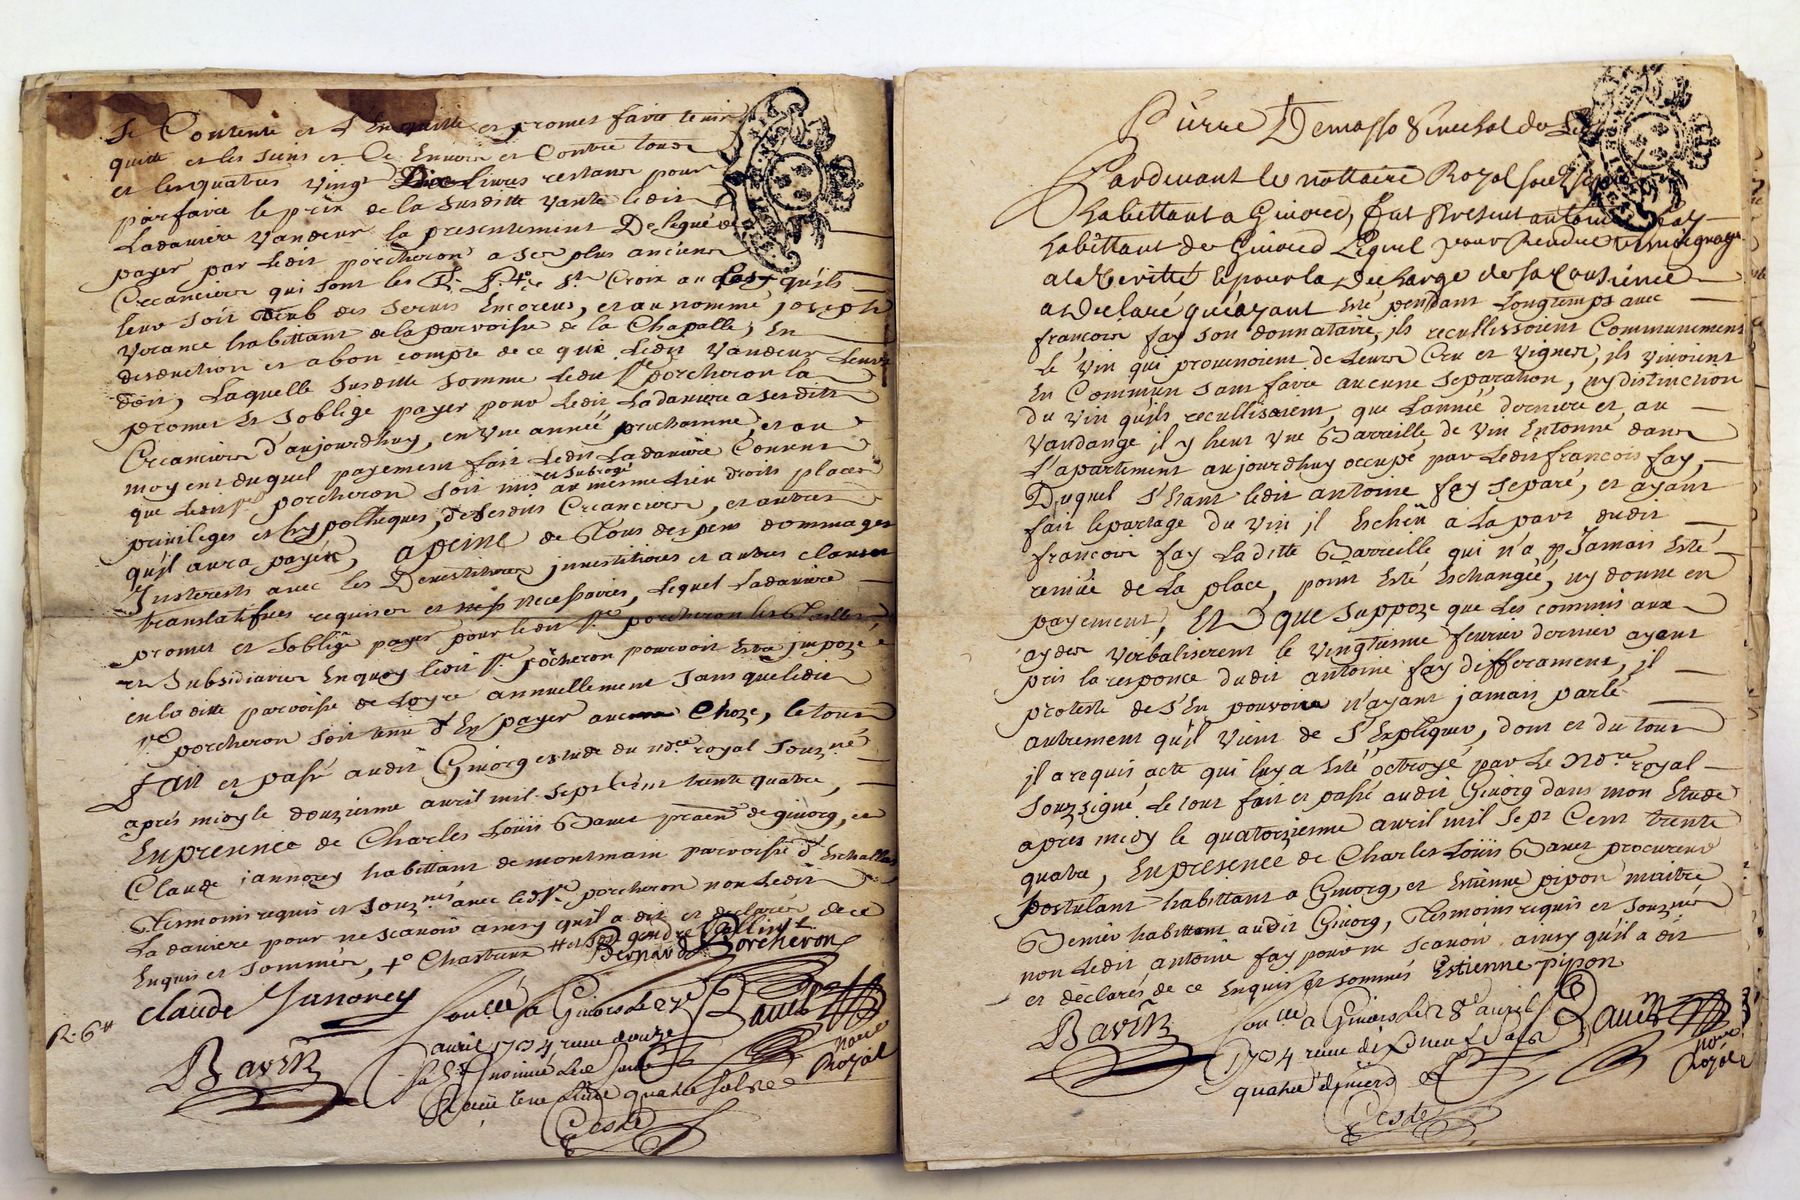 Se Contente et L'En quitte et promet faire tenir
quitte et les siens et De Envers et Contre tous
et les quatres vingt Dix Livres restans pour
parfaire le prix de la susditte vante ledit
Ladaviere vandeur la presentement Delegué de
payer par ledit porcheron a ses plus anciens
Creanciers qui sont les R. P. de Ste Croix au
leur soit des Servis Encourus, et au nommé joseph
Verance habittant de la parroisse de la Chapelle, En
deduction et a bon compte de ce que ledit vandeur Leurs
doit, Laquelle susditte somme ledit Sr porcheron la
promet et s'oblige payer pour ledit Ladaviere a sesdits
Creanciers d'aujourdhuy, en une année prochainne, et au
moyent duquel payement fait ledit Ladaviere Consent
que ledit Sr porcheron soit mis et subrogé au mesme lieu droits places
privileges et hypotheques, de sesdits Creanciers, et autres
qu'il aura payés, a peine de Tous despens dommages
Interests avec les Devestitures investitures et autres clauses
translatifves requises et necessaires, Lequel Ladaviere
promet et s'oblige payer pour ledit Sr porcheron les Tailles,
et Subsidiaires En quoy ledit Sr pocheron pourroit Estre jmpozé
en la ditte parroisse de Loyre annuellement sans que ledit
Sr porcheron soit tenu d'En payer aucune Choze, le tout
fait et passé audit Givorg estude du nore royal souzné
après midy le douzieme avril mil sept Cent trente quatre,
En presence de Charles Loüis Bavet praen de givorg, et
Claude jannorey habittant de montmain parroisse d'Eschallas
Tesmoins requis et souznés avec ledit Sr porcheron non ledit
Ladaviere pour ne scavoir ainsy qu'il a dit et declaré de ce
Enquis et sommés, +° Chartreux
Bernard Porcheron
Claude Janorey
R. 6#
Bavet
avril 1734 receu douze
quatre
nore
Royal
Ceste
Pierre Demasso Senechal de
Pardevant le nottaire Royal souzsigné
habittant a Givord, fut present antoine fay
habittant de Givord Lequel pour Rendre temoignage
a la Verittè Et pour la Décharge de sa Consience
a declaré qu'ayant esté pendant Longtemps avec
françois fay son donnataire, ils recullissoient Communement
le vin qui provenoient de leurs Cru et vignes, ils vivoient
En Commun sans faire aucune separation, ny distinction
du vin qu'ils recullissoient, que L'année derniere et au
vandange il y heut une Barreille de vin Entonné dans
L'apartement aujourdhuy occupé par ledit françois fay,
Duquel s'Etant ledit antoine fay separé, et ayant
fait le partage du vin il Escheü a La part dudit
françois fay Laditte Barreille qui n'a Jamais Esté
remüé de La place, point Esté Eschangée, ny donné en
payement, Et que suppoze que Les commis aux
aydes verbaliserent le vingtieme fevrier dernier ayent
pris la responce dudit antoine fay differament, il
proteste de s'En pourvoir n'ayant jamais parlé
autrement qu'il vient de s'Expliquer, dont et du tout
il a requis acte qui luy a Esté octroyé par Le Nore royal
souzsigné, Le tout fait et passé audit Givorg dans mon Etude
après midy le quatorzieme avril mil sept Cent trente
quatre, En presence de Charles Loüis Bavet procureur
postulant habittant a Givorg, et Estienne pipon maitre
habittant audit Givorg, Tesmoins requis et souznés
non Ledit antoine fay pour ne scavoir ainsy qu'il a dit
et declaré de ce Enquis et sommés Estienne pipon
Bavet
a Givors le 28e avril
1734 receu dixneuf sols
quatre deniers
nore
Royal
Ceste